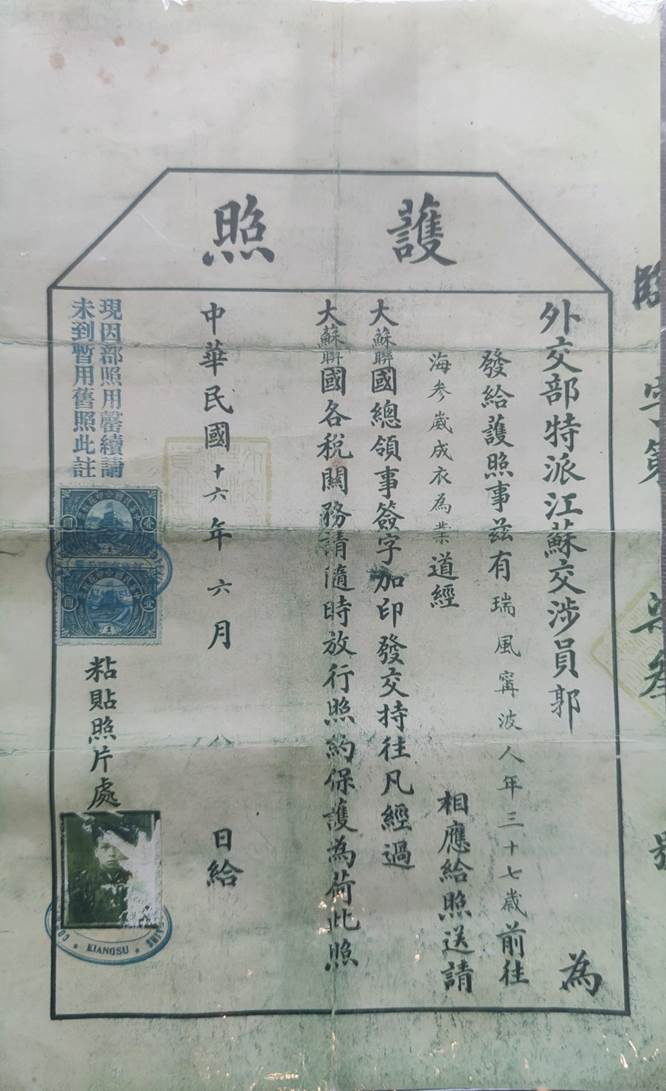 護照
外交部特派江蘇交涉員郭
為
發給護照事茲有瑞風寧波人年三十七歲前往
海參崴成衣為業道經
相應給照送請
大蘇聯國總領事簽字加印發交持往凡經過
大蘇聯國各稅關務請隨時放行照約保護為荷此照
中華民國十六年六月
日給
現因部照用罄續請
未到暫用舊照此註
粘貼照片處
KIANGSU
字第